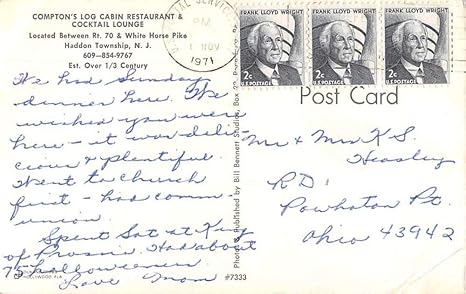 COMPTON'S LOG CABIN RESTAURANT &
COCKTAIL LOUNGE
Located Between Rt. 70 & White Horse Pike
Haddon Township, N. J.
609—854-9767
Est. Over 1/3 Century
We had Sunday
dinner here. We
wished you were
here - it was deli-
cious & plentiful.
Went to church
first - had comm-
union.
Spent Sat at King
of Prussia. Had about
75 halloweeners.
Love Mom
HOLLYWOOD, FLA.
Photo & Published by Bill Bennett Studios, Box
#7333
PM
1 NOV
1971
FRANK LLOYD WRIGHT
2c
U.S. POSTAGE
FRANK LLOYD WRIGHT
2c
U.S. POSTAGE
FRANK LLOYD WRIGHT
2c
U.S. POSTAGE
Post Card
Mr & Mrs K S.
Heasley
RD 1
Powhatan Pt.
Ohio 43942